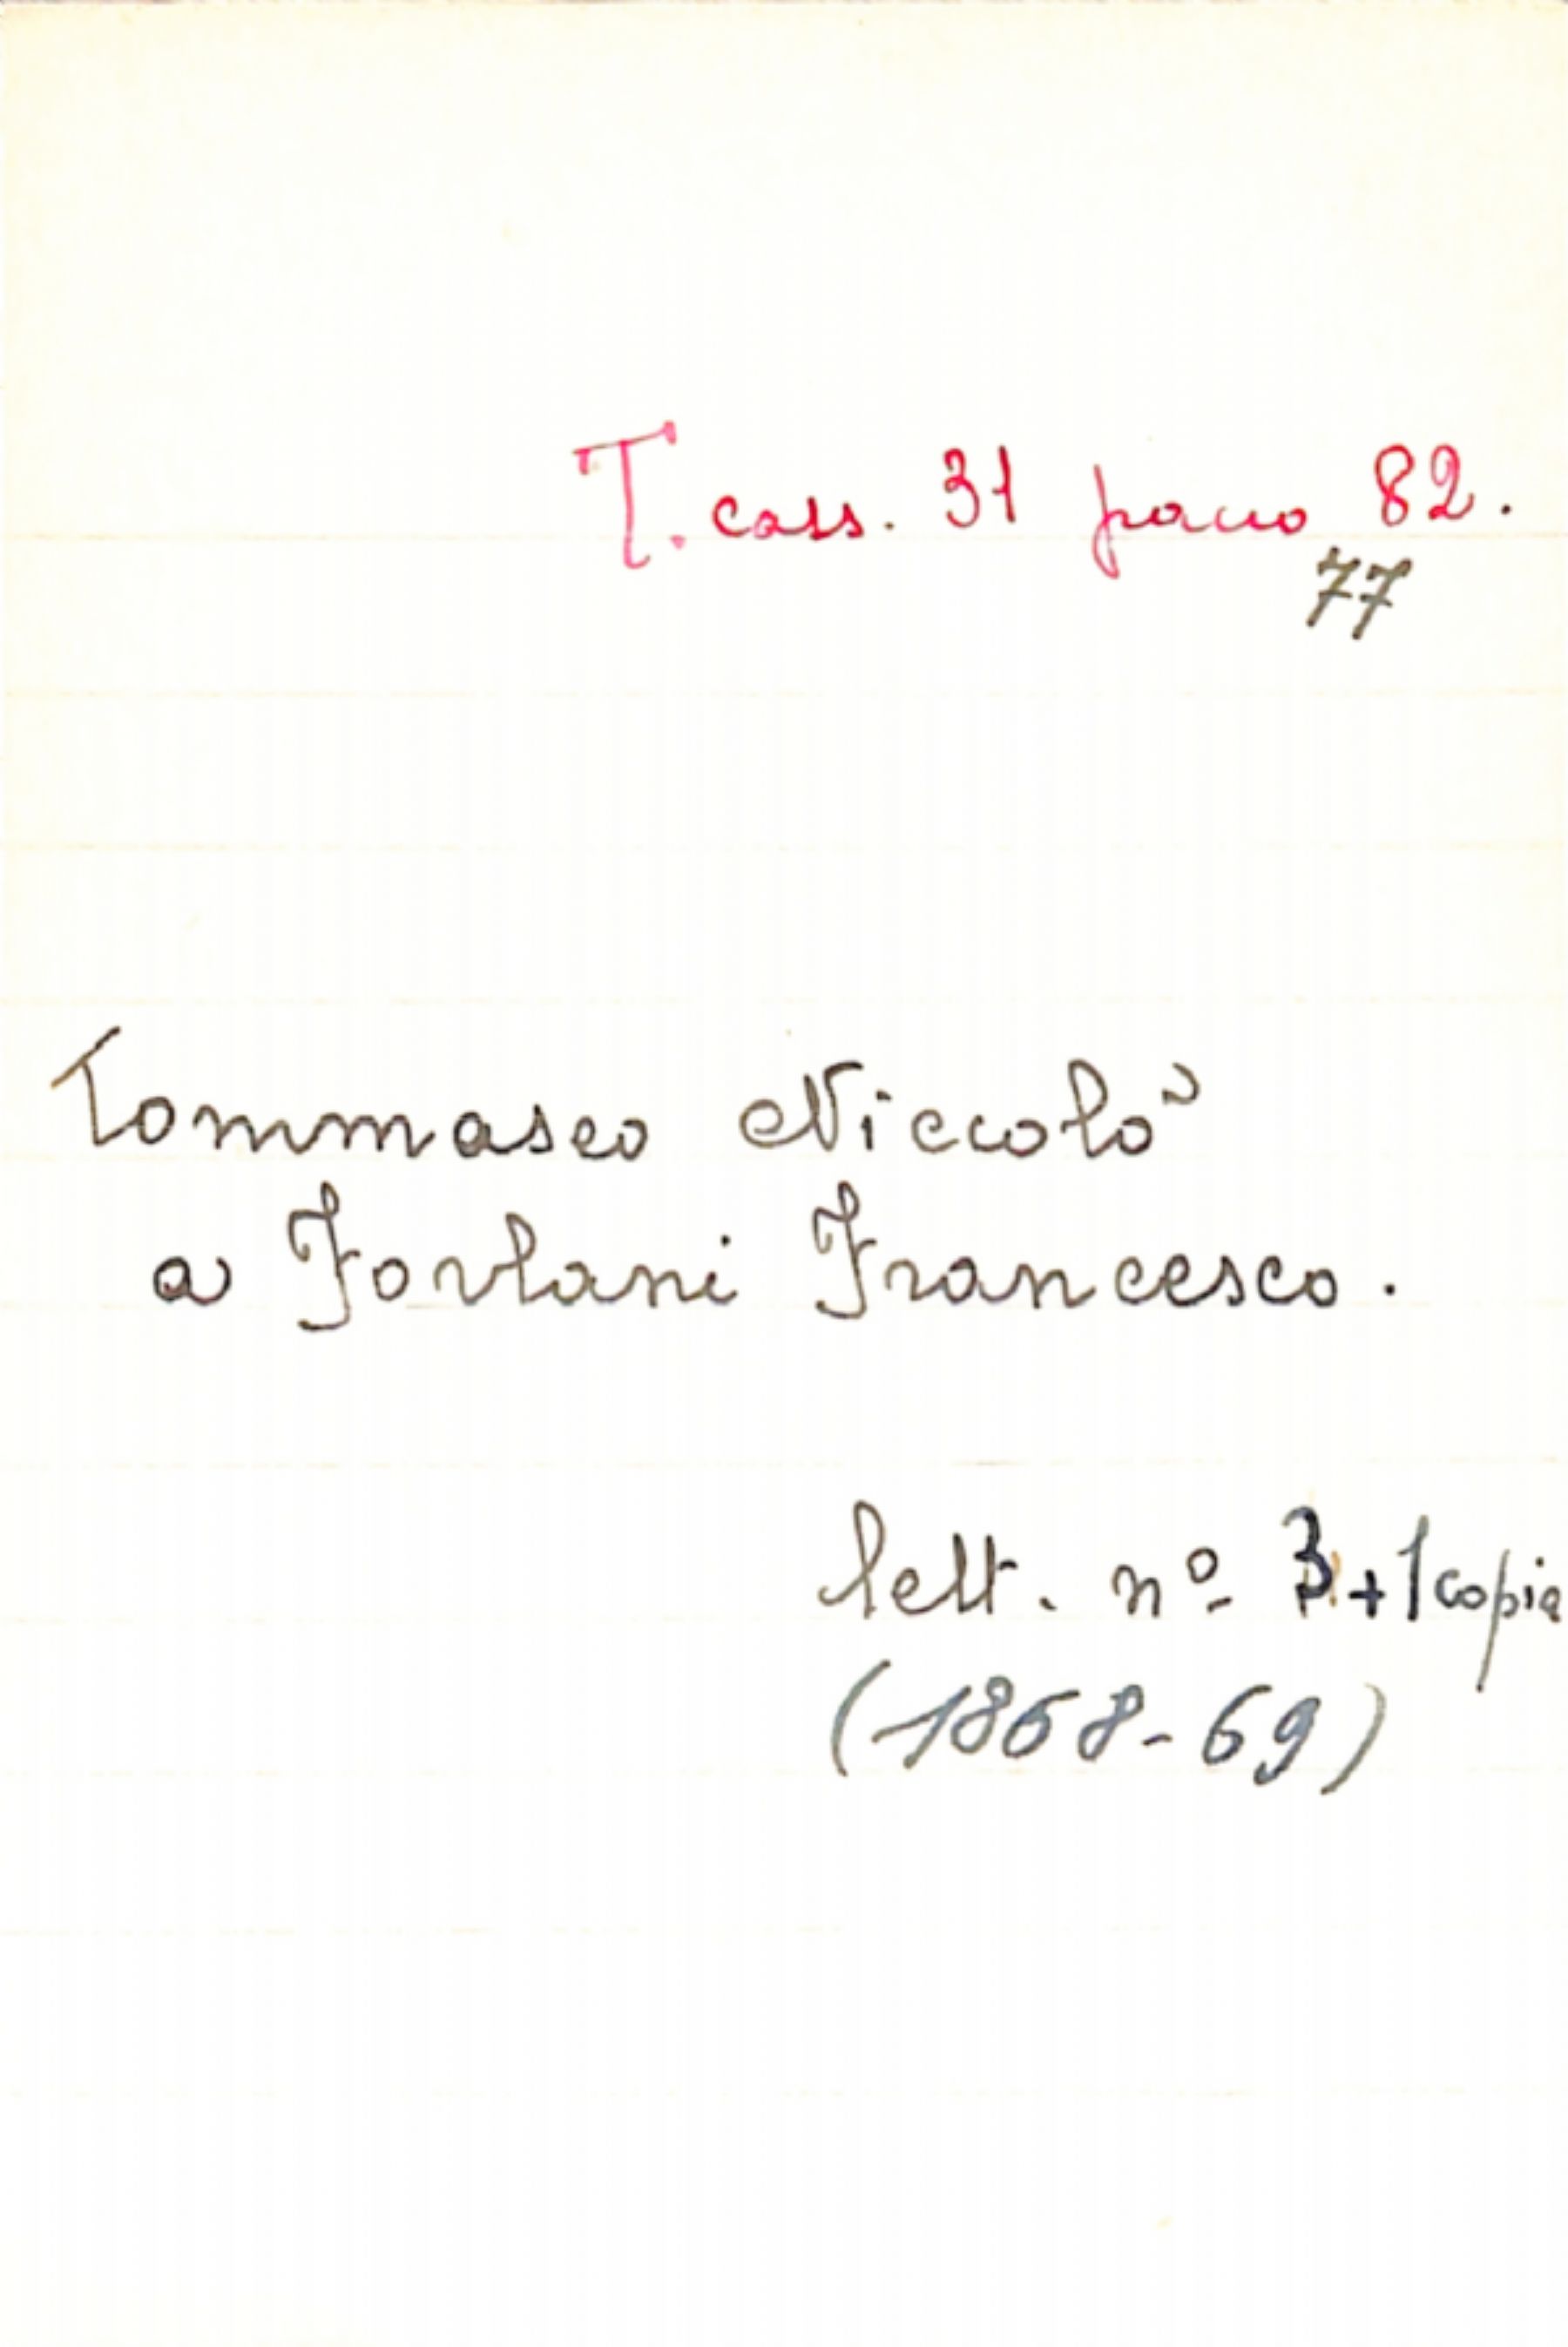 T. cass. 31 pacco 82.
77
Tommaseo Niccolò
a Forlani Francesco.
lett. nº 3 + 1 copia
(1868-69)